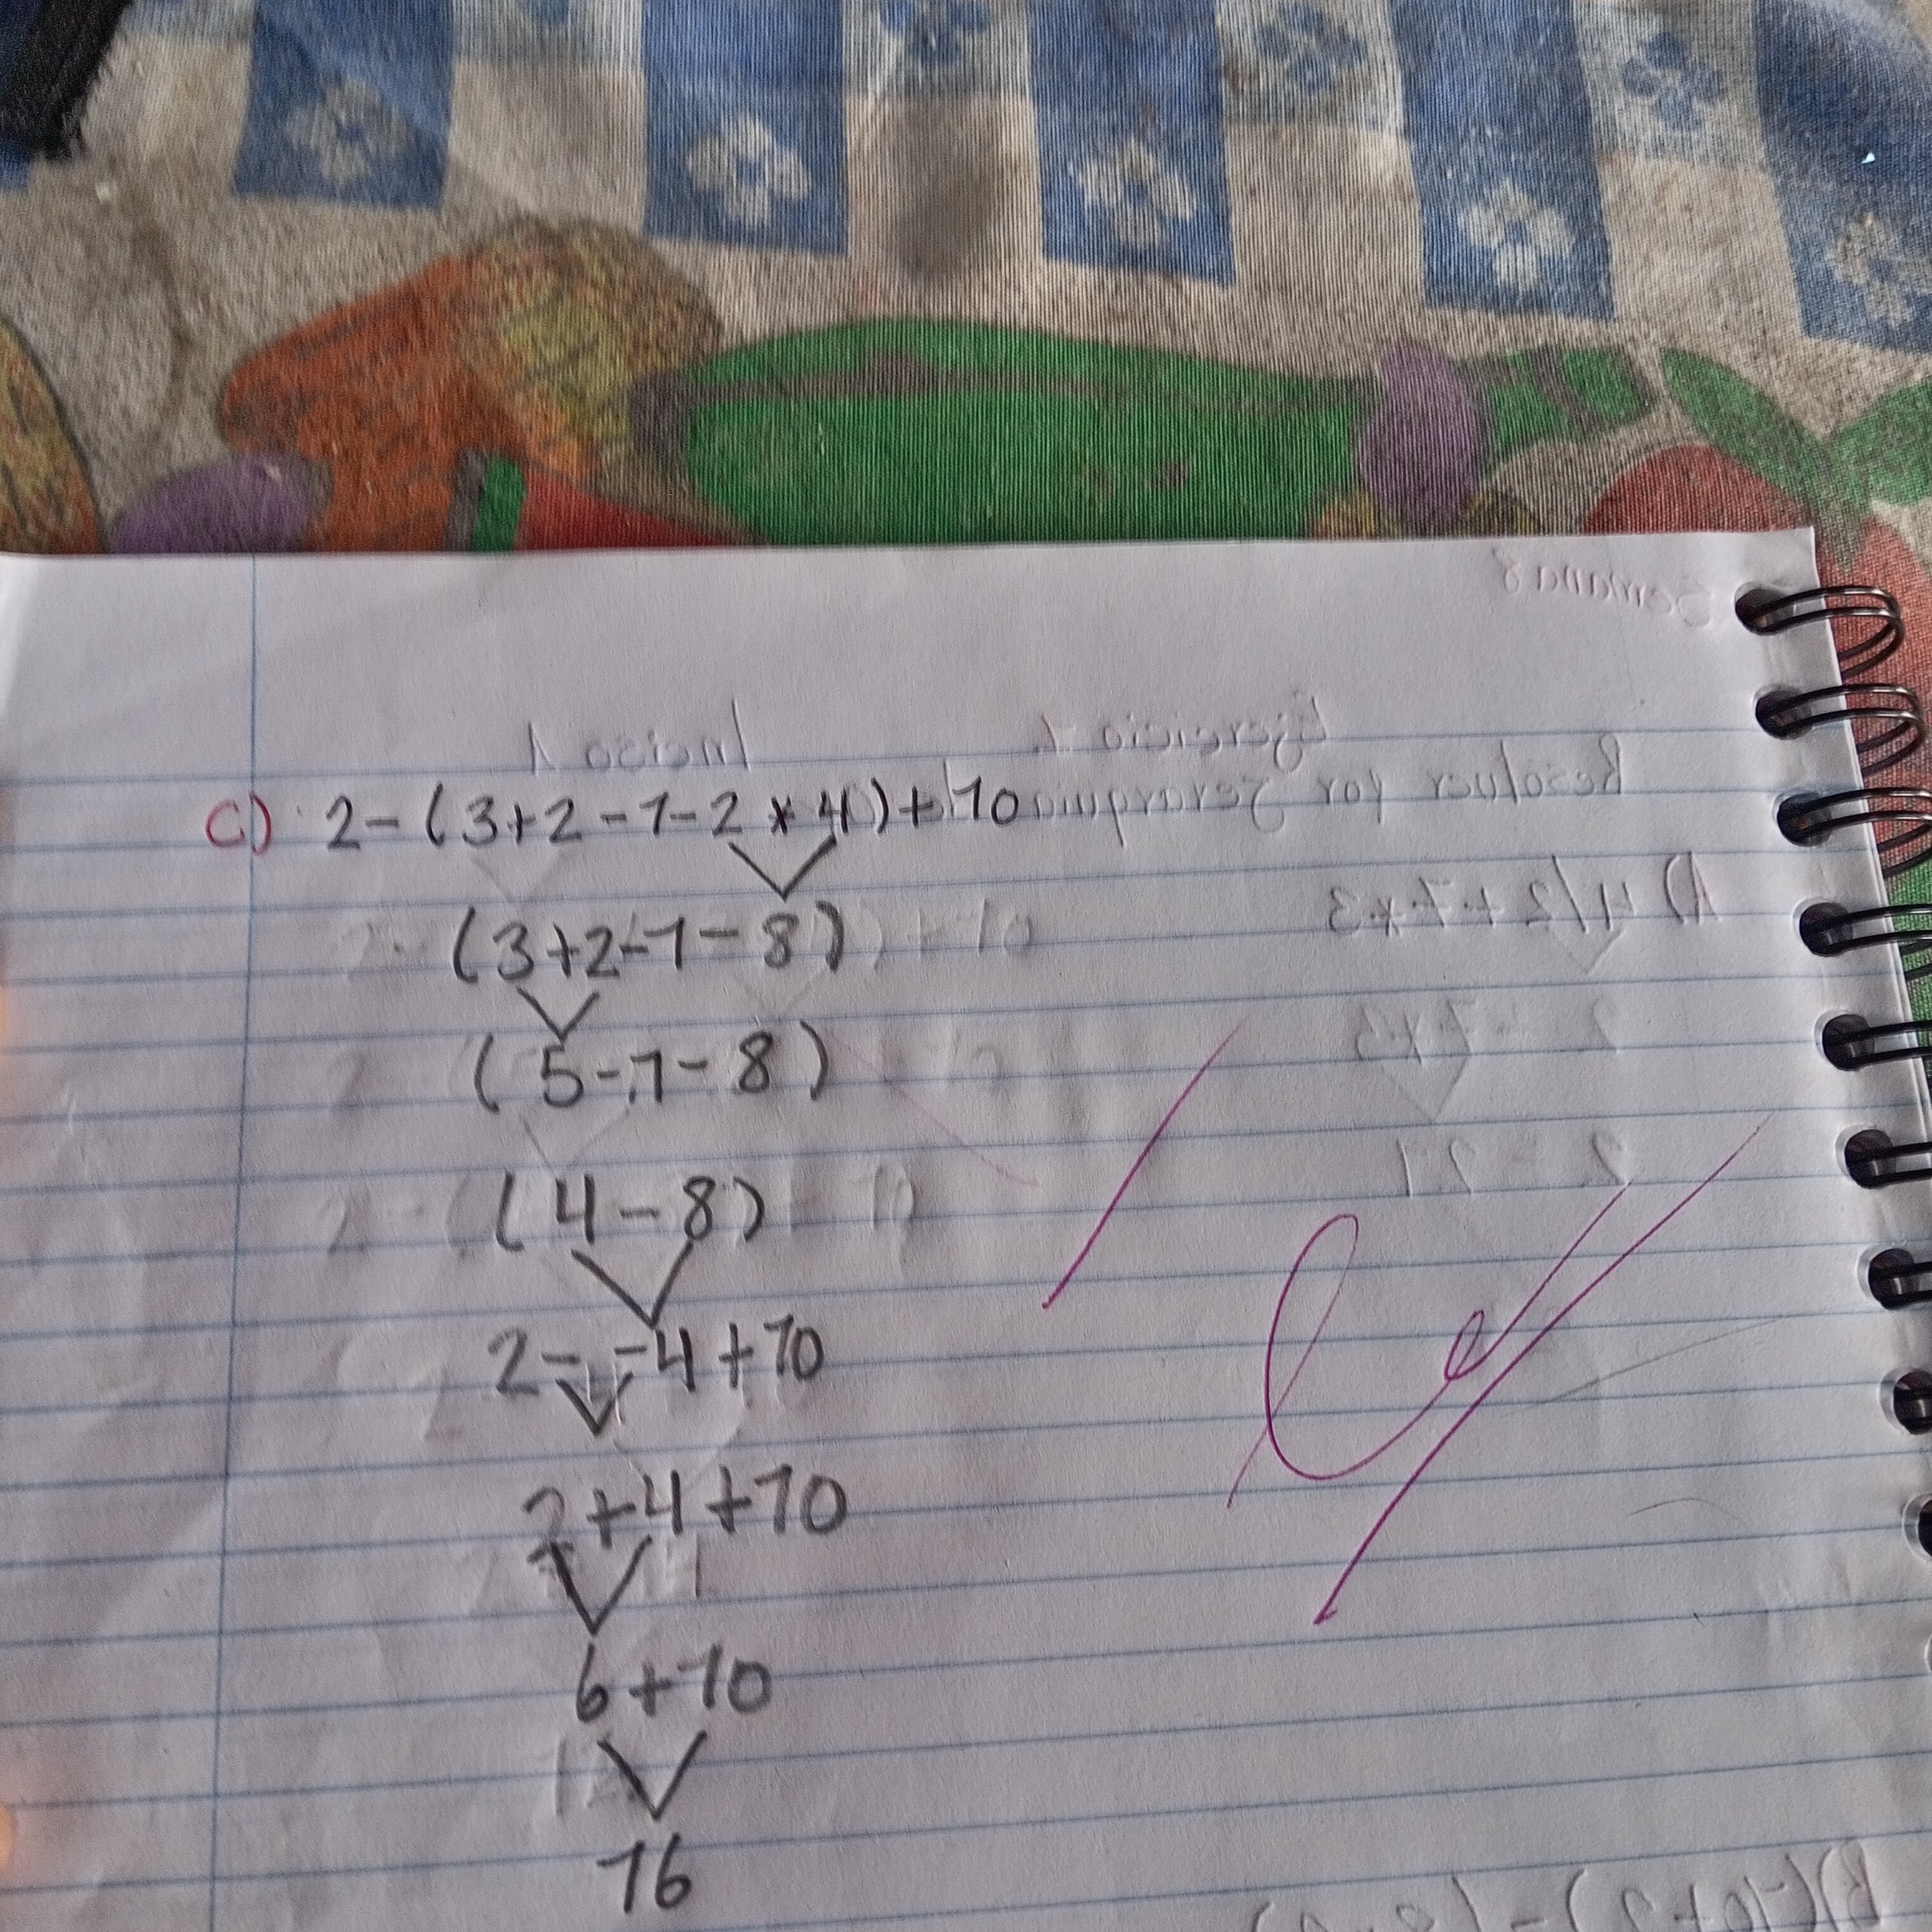 C) 2-(3+2-1-2*4)+10
(3+2-1-8)
(5-1-8)
(4-8)
2--4+10
2+4+10
6+10
16